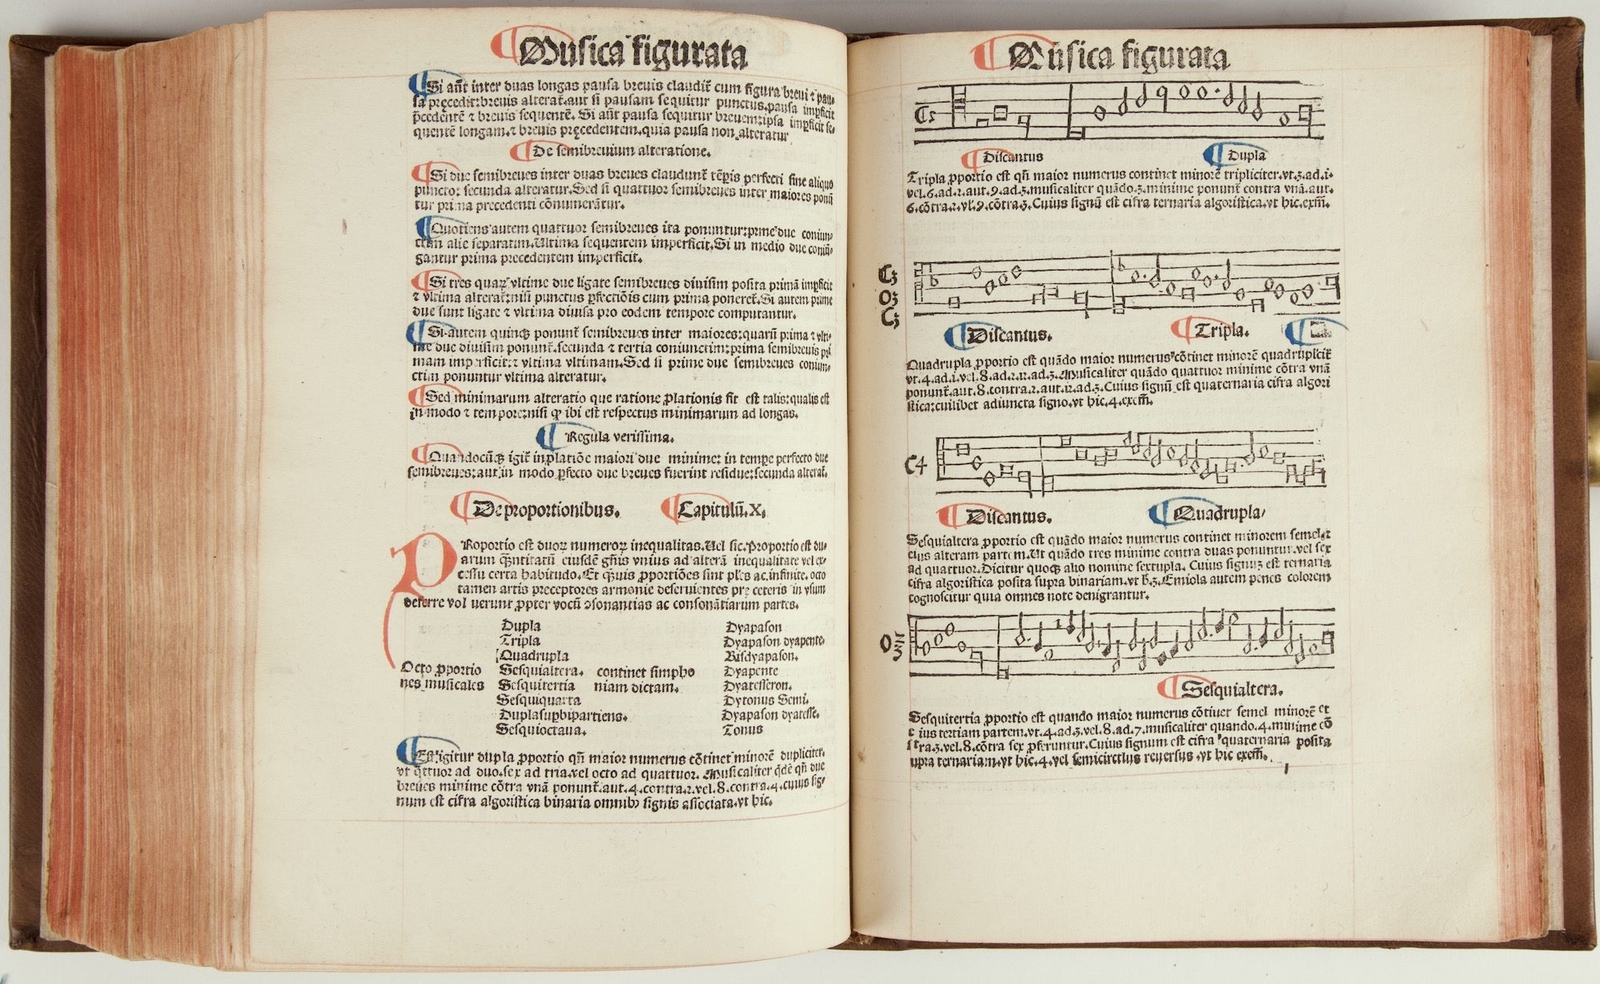 Musica figurata
Si aūt inter duas longas pausa brevis claudit̄ cum figura brevi ⁊ pau-
sa pręcedit: brevis alterat̄. aut si pausam sequitur punctus, pausa impficit
p̄cedentē ⁊ brevis sequentē. Si aūt pausa sequitur brevem: ipsa impficit se-
quentē longam. ⁊ brevis pręcedentem, quia pausa non alteratur
De semibrevium alteratione.
Si due semibreves inter duas breves claudunt̄ tēp̄is perfecti sine aliquo
puncto: secunda alteratur. Sed si quattuor semibreves inter maiores ponū
tur prima precedenti cōnumerātur.
Quotiens autem quattuor semibreves ita ponuntur: prīme due coniun-
ctim alie separatim. Ultima sequentem imperficit. Si in medio due coniū-
gantur prima precedentem imperficit.
Si tres quaꝝ ultime due ligate semibreves divisim posita primā impficit
⁊ ultima alterat̄: nisi punctus pfectiōis cum prima poneret̄. Si autem prime
due sunt ligate ⁊ ultima divisa pro eodem tempore computantur.
Si autem quinqꝫ ponunt̄ semibreves inter maiores: quarū prima ⁊ ulti-
me due divisim ponunt̄. secunda ⁊ tertia coniunctim: prima semibrevis pri
mam imperficit: ⁊ ultima ultimam. Sed si prime due semibreves coniun-
ctim ponuntur ultima alteratur.
Sed minimarum alteratio que ratione plationis fit est talis: qualis est
in modo ⁊ tempore: nisi ꝙ ibi est respectus minimarum ad longas.
Regula verissima.
Quandocūqꝫ igit̄ in platiōe maiori due minime: in tempe perfecto due
semibreves: aut in modo pfecto due breves fuerint residue: secunda alterat̄.
De proportionibus. Capitulū. X.
PRoportio est duoꝝ numeroꝝ inequalitas. Vel sic. Proportio est du-
arum q̄ntitatū eiusdē gn̄is unius ad alterā inequalitate vel ex-
cessu certa habitudo. Et q̄uis pportiōes sint pl̄es ac infinite. octo
tamen artis preceptores armonie deservientes pre ceteris in usum
deferre voluerunt ppter vocū ↄsonantias ac consonātiarum partes.
Dupla Dyapason
Tripla Dyapason dyapente.
Quadrupla Bisdyapason.
Octo pportio Sesquialtera. continet simpho Dyapente
nes musicales Sesquitertia niam dictam. Dyatesseron.
Sesquiquarta Dytonus Semi.
Duplasupbipartiens. Dyapason dyatesse.
Sesquioctava. Tonus
Est igitur dupla pportio qn̄ maior numerus cōtinet minorē dupliciter.
ut q̄ttuor ad duo. sex ad tria. vel octo ad quattuor. Musicaliter q̄dē qn̄ due
breves minime cōtra vnā ponunt̄. aut. 4. contra. 2. vel. 8. contra. 4. cuius sig-
num est cifra algoristica binaria omnibꝫ signis associata. ut hic.
Musica figurata
Discantus Dupla
Tripla pportio est qn̄ maior numerus continet minorē tripliciter. ut. 3. ad. i.
vel. 6. ad. 2. aut. 9. ad. 3. musicaliter quādo. 3. minime ponunt̄ contra vnā. aut.
6. cōtra. 2. vl̄. 9. cōtra. 3. Cuius signū est cifra ternaria algoristica. ut hic. exm̄.
Discantus. Tripla.
Quadrupla pportio est quādo maior numerus cōtinet minorē quadruplicit̄
ut. 4. ad. i. vel. 8. ad. 2. 12. ad. 3. Musicaliter quādo quattuor minime cōtra vnā
ponunt̄. aut. 8. contra. 2. aut. 12. ad. 3. Cuius signū est quaternaria cifra algori
stica: cuilibet adiuncta signo. ut hic. 4. exem̄.
C4
Discantus. Quadrupla
Sesquialtera pportio est quādo maior numerus continet minorem semel ⁊
eius alteram partem. Ut quādo tres minime contra duas ponuntur. vel sex
ad quattuor. Dicitur quoqꝫ alio nomine sextupla. Cuius signū est ternaria
cifra algoristica posita supra binariam. ut h. 3. Emiola autem penes colorem
cognoscitur quia omnes note denigrantur.
Sesquialtera.
Sesquitertia pportio est quando maior numerus cōtinet semel minorē et
eius tertiam partem. ut. 4. ad. 3. vel. 8. ad. 7. musicaliter quando. 4. minime cō
tra. 3. vel. 8. cōtra sex pferuntur. Cuius signum est cifra quaternaria posita
supra ternariam. ut hic. 4. vel semicirclus reversus. ut hic exem̄.